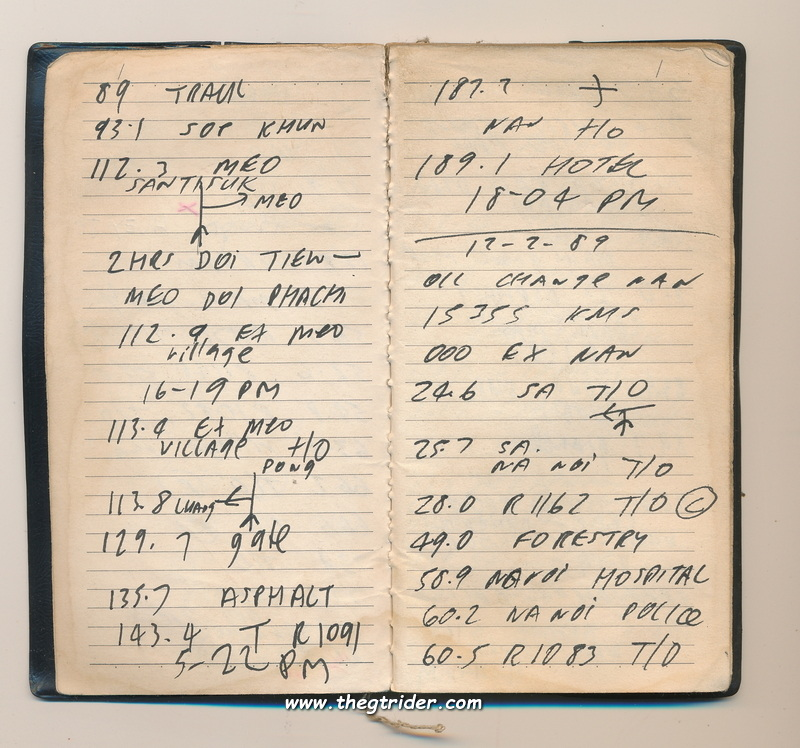 89 TRAUL
93.1 SOP KHUN
112.3 MEO
SANTISUK
MEO
2HRS DOI TIEW—
MEO DOI PHACHI
112.9 EX MEO
village
16-19 PM
113.4 EX MEO
VILLAGE T/O
PONG
113.8
129.7 gate
135.7 ASPHALT
143.4 T R1091
5-22 PM
187.7
NAN T/O
189.1 HOTEL
18-04 PM
12-2-89
OIL CHANGE NAN
15355 KMS
000 EX NAN
24.6 SA T/O
25.7 SA.
NA NOI T/O
28.0 R1162 T/O C
49.0 FORESTRY
58.9 NANOI HOSPITAL
60.2 NA NOI POLICE
60.5 R1083 T/O
www.thegtrider.com